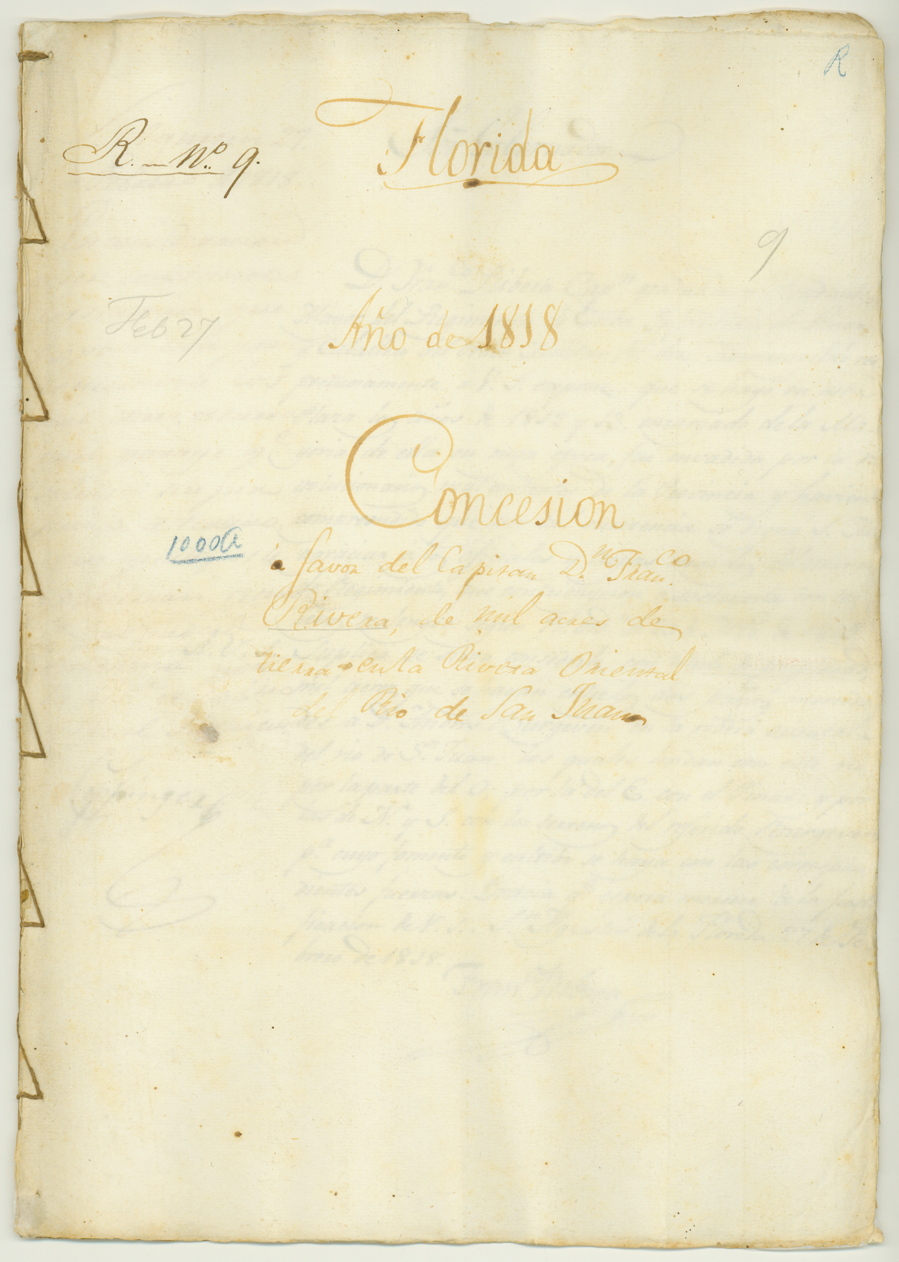 R
R. Nº. 9.
Florida
9
Feb 27
Año de 1818
Concesion
1000A
a favor del Capitan Dn. Franco.
Rivera, de mil acres de
tierra en la Rivera Oriental
del Rio de San Juan